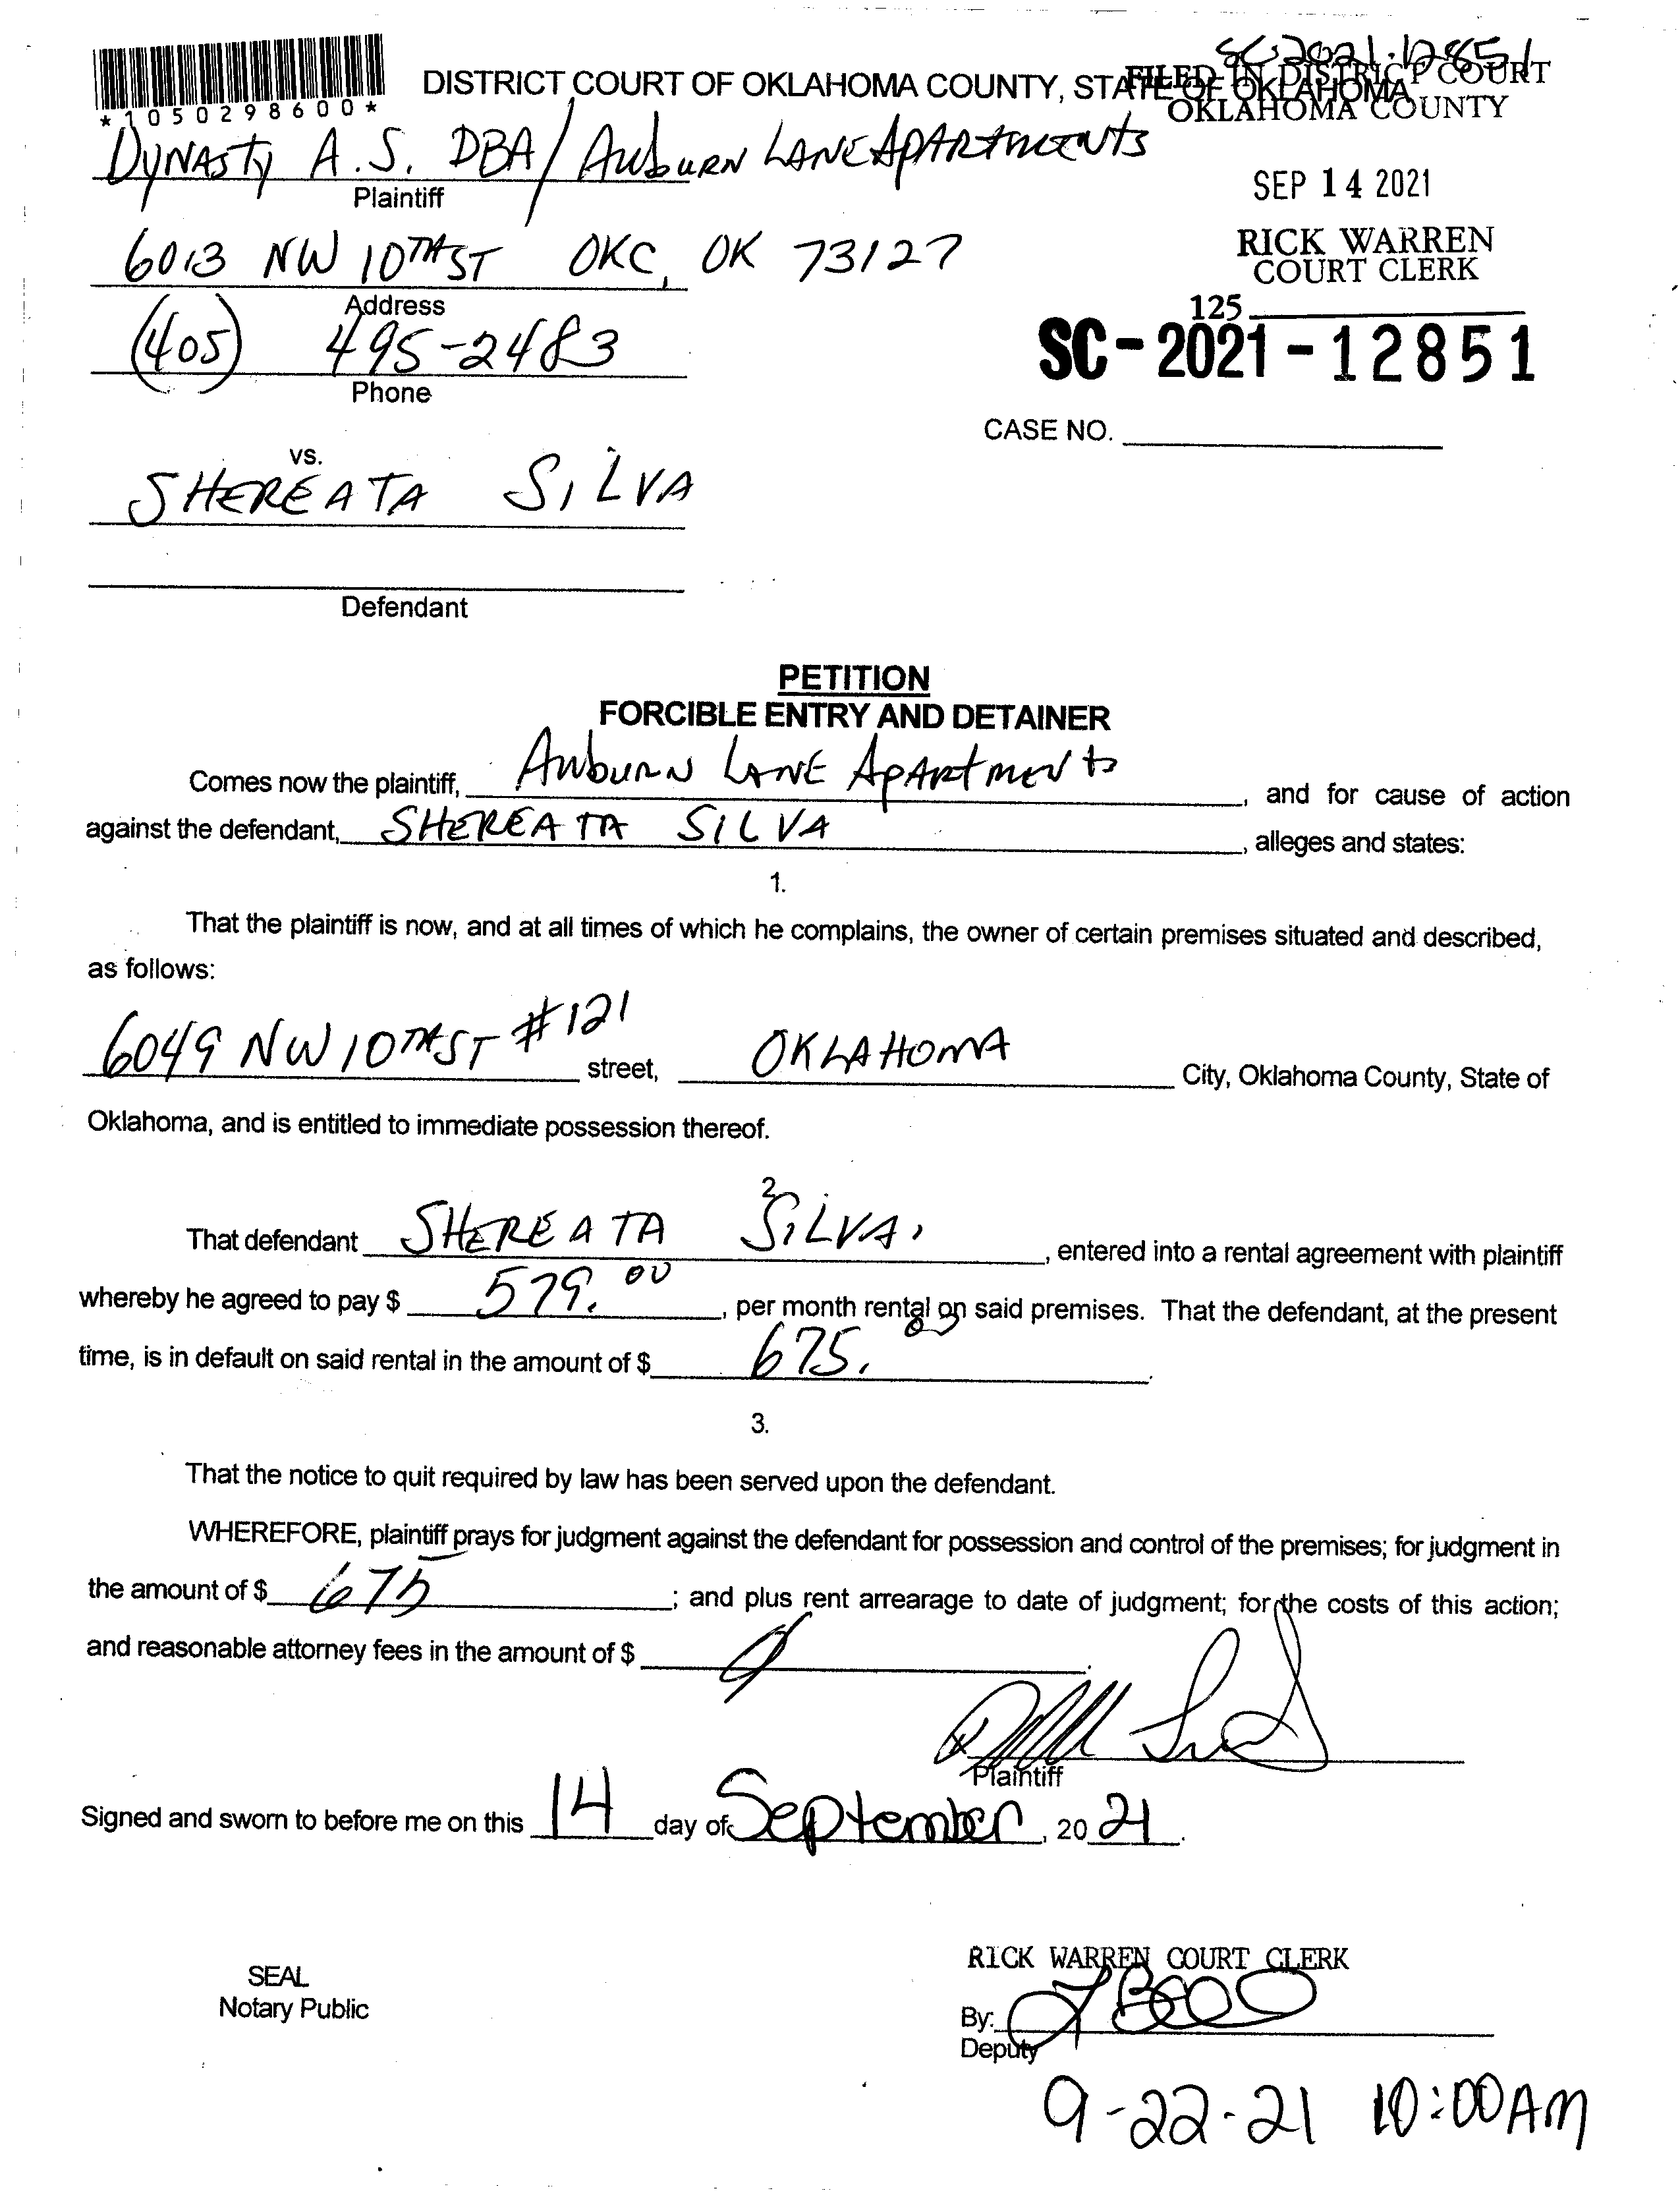 SC-2021-12851
DISTRICT COURT OF OKLAHOMA COUNTY, STATE OF OKLAHOMA
FILED IN DISTRICT COURT
OKLAHOMA COUNTY
*1050298600*
DYNASTY A.S. DBA/AuburN LANE APARTMENTS
Plaintiff
SEP 14 2021
6013 NW 10TH ST OKC, OK 73127
Address
RICK WARREN
COURT CLERK
125
(405) 495-2483
Phone
SC-2021-12851
CASE NO.
vs.
SHEREATA SILVA
Defendant
PETITION
FORCIBLE ENTRY AND DETAINER
Comes now the plaintiff, AuburN LANE ApArtments, and for cause of action
against the defendant, SHEREATA SILVA, alleges and states:
1.
That the plaintiff is now, and at all times of which he complains, the owner of certain premises situated and described,
as follows:
6049 NW 10TH ST #121 street, OKLAHOMA City, Oklahoma County, State of
Oklahoma, and is entitled to immediate possession thereof.
2
That defendant SHEREATA SILVA, entered into a rental agreement with plaintiff
whereby he agreed to pay $ 579.00, per month rental on said premises. That the defendant, at the present
time, is in default on said rental in the amount of $ 675.00.
3.
That the notice to quit required by law has been served upon the defendant.
WHEREFORE, plaintiff prays for judgment against the defendant for possession and control of the premises; for judgment in
the amount of $ 675; and plus rent arrearage to date of judgment; for the costs of this action;
and reasonable attorney fees in the amount of $ .
Plaintiff
Signed and sworn to before me on this 14 day of September, 2021.
RICK WARREN COURT CLERK
SEAL
Notary Public
By:
Deputy
9-22-21 10:00AM